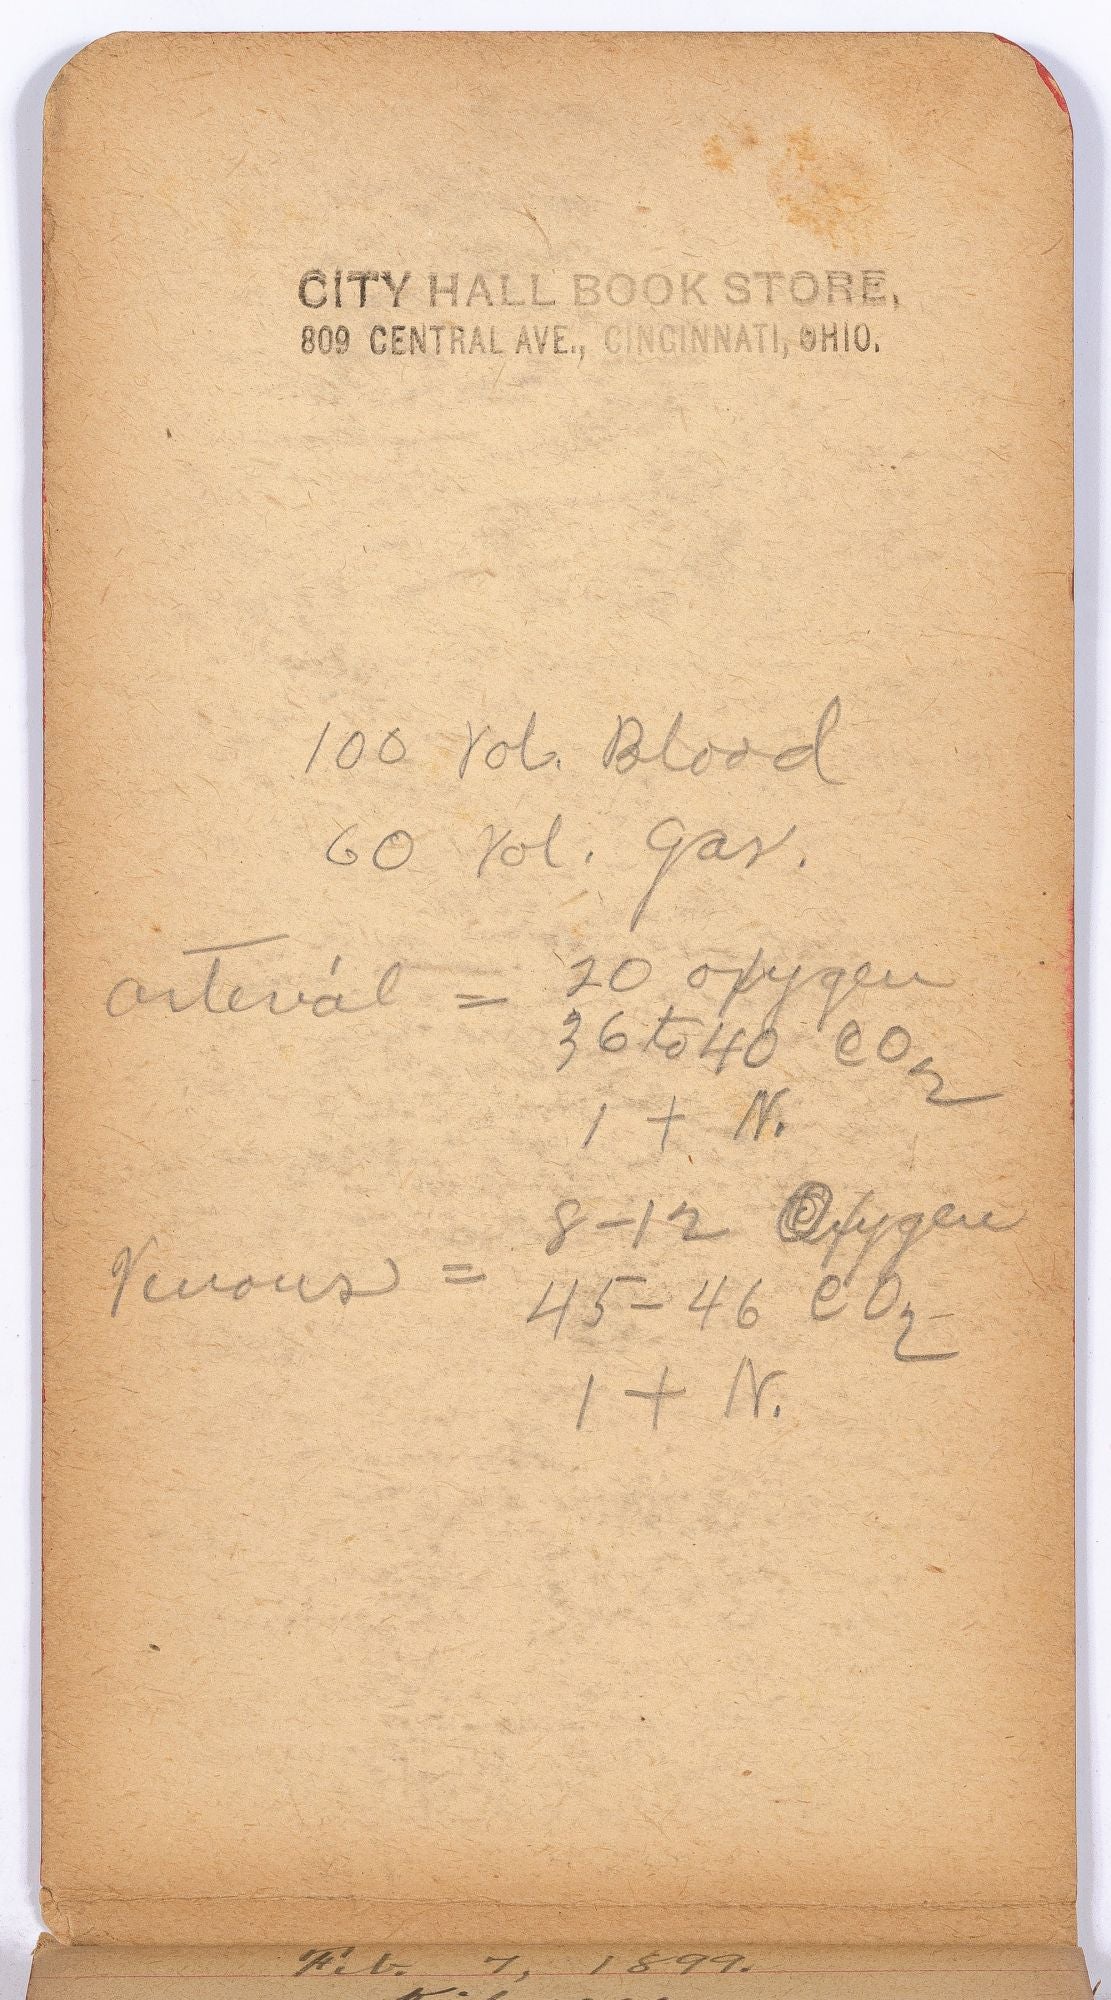 CITY HALL BOOK STORE,
809 CENTRAL AVE., CINCINNATI, OHIO.
100 Vol. Blood
60 Vol. Gas.
Arterial = 20 oxygen
36 to 40 CO2
1 + N.
8-12 Oxygen
Venous = 45-46 CO2
1 + N.
Feb. 7, 1899.